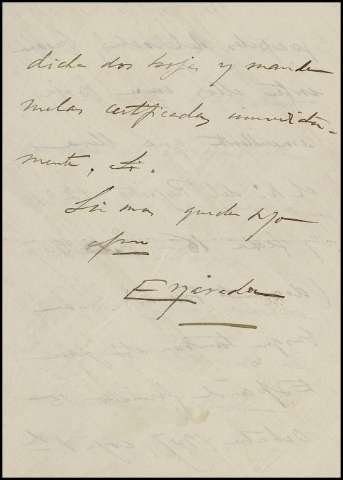 dicha dos hojas y mande
melas certificadas inmediata-
mente,
Sin mas queda suyo
afmo